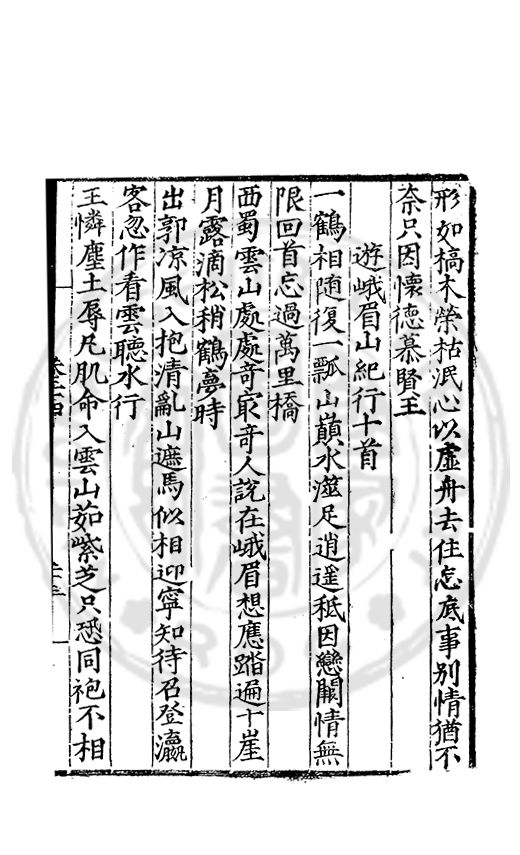 形如槁木榮枯泯心以虛舟去住忘底事別情猶不
奈只因懷德慕賢王
遊峨眉山紀行十首
一鶴相随復一瓢山巔水澨足逍遥秪因戀闕情無
限回首忘過萬里橋
西蜀雲山處處竒㝡竒人說在峨眉想應踏遍十崖
月露滴松稍鶴夢時
出郭凉風入抱清亂山遮馬似相迎寧知待召登瀛
客忽作看雲聽水行
王憐塵土辱凡肌命入雲山茹紫芝只恐同袍不相